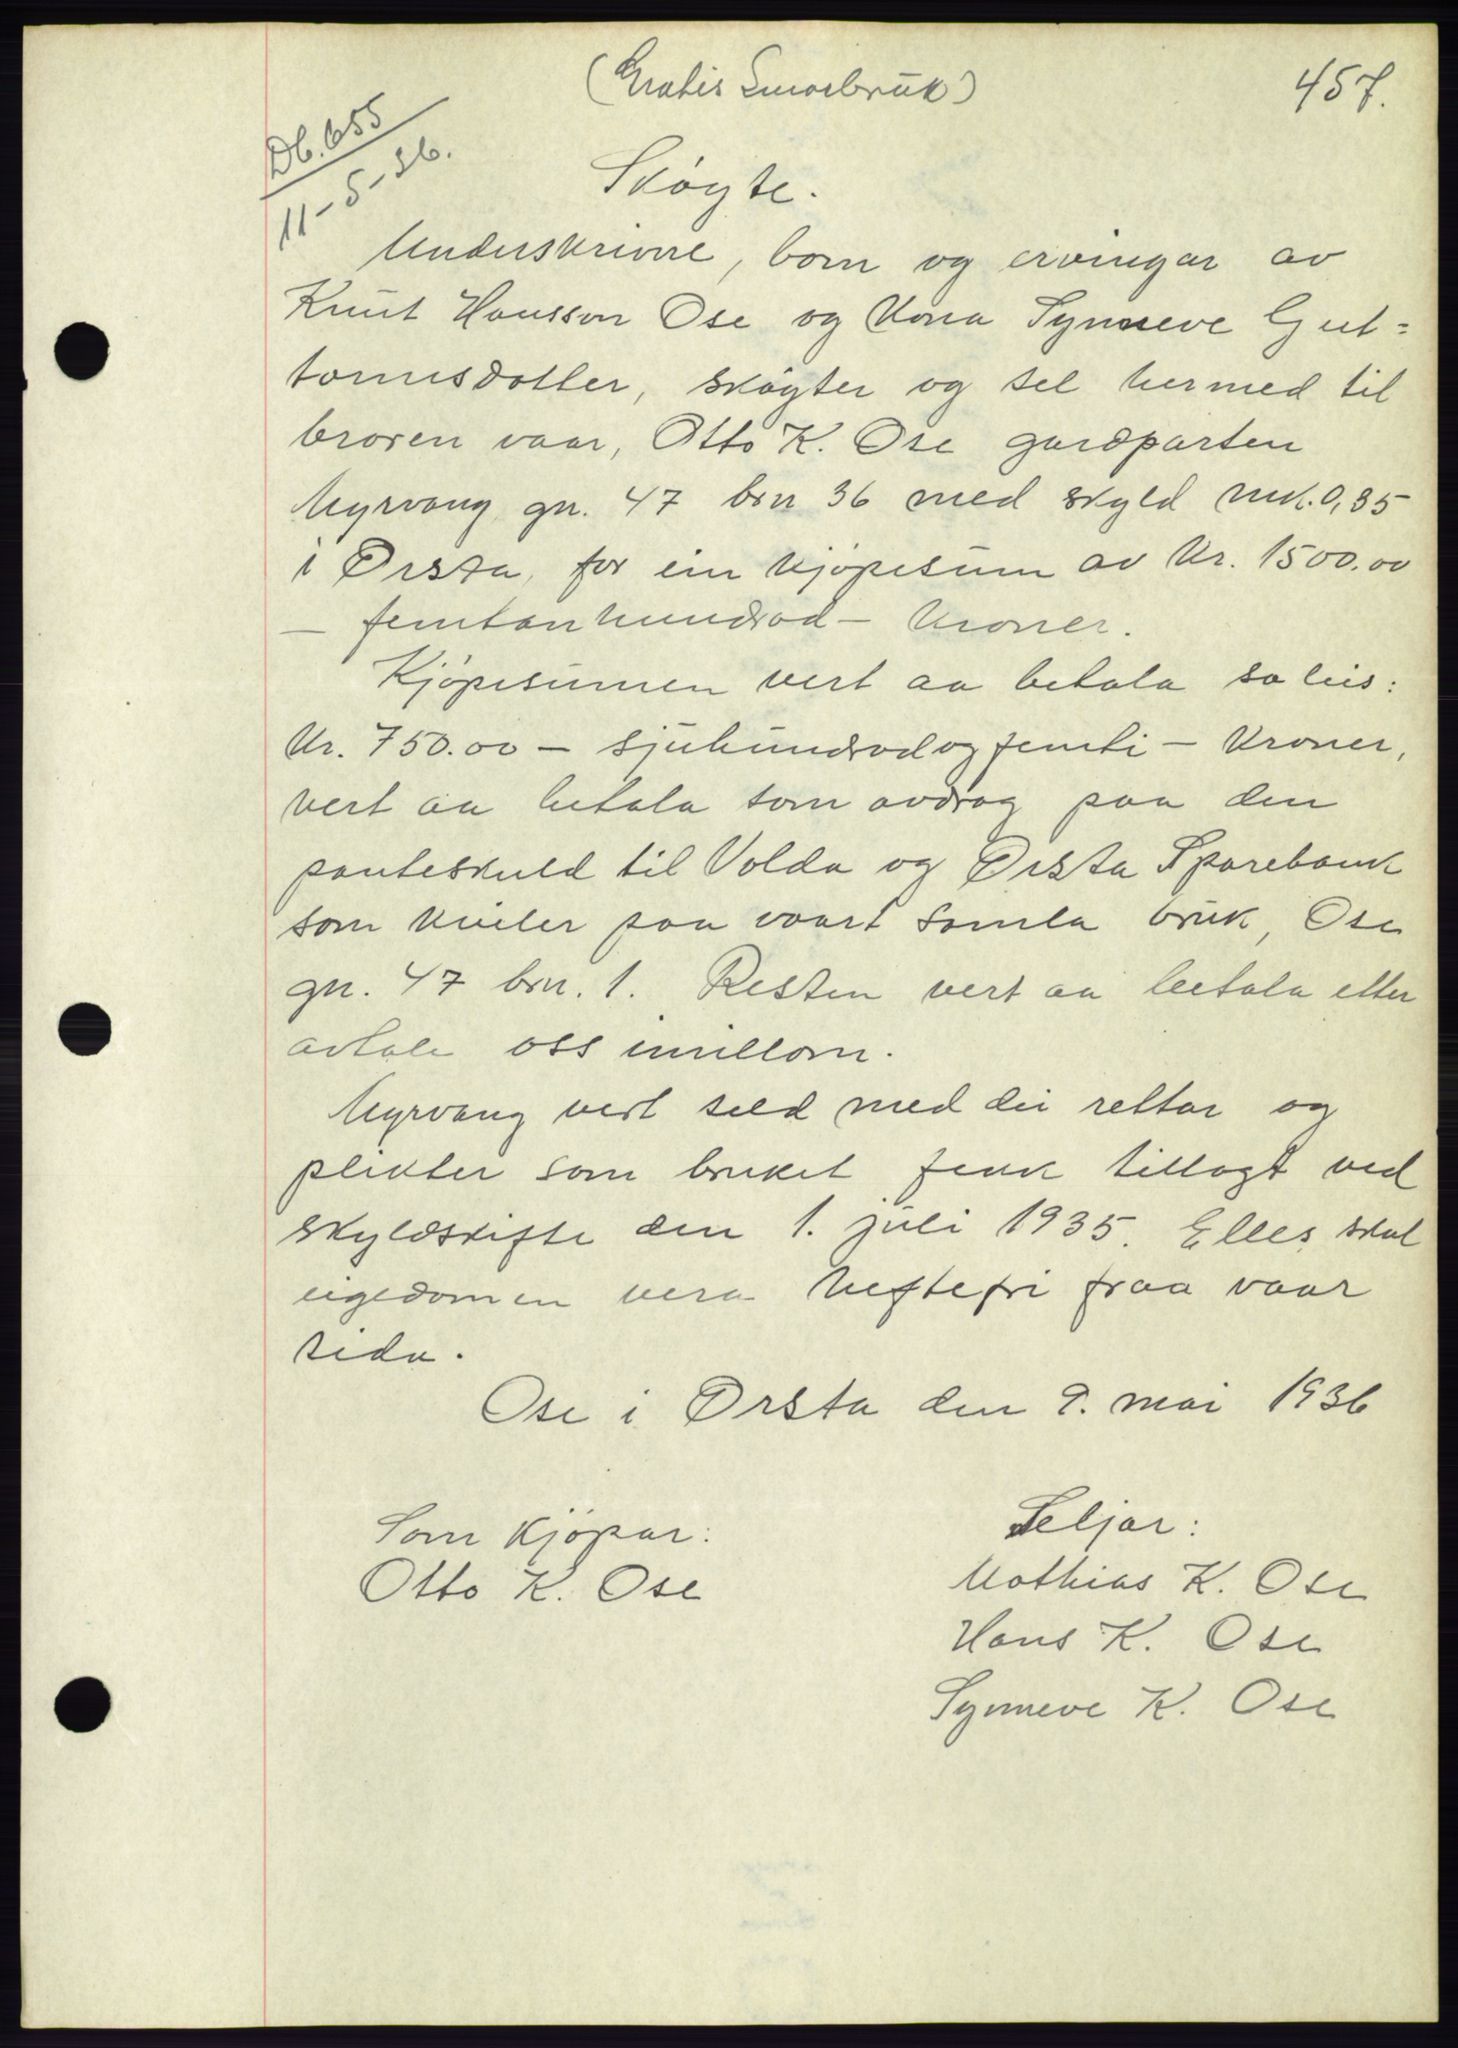 (Gratis Smaabruk)
457.
Db. 655
11-5-36.
Skøyte.
Underskrivne, born og ervingar av
Knut Hansson Ose og kona Synneve Gut=
tormsdotter, skøyter og sel hermed til
broren vaar, Otto K. Ose gardparten
Myrvang gn. 47 brn 36 med skyld mk. 0,35
i Ørsta, for ein kjøpesum av kr. 1500.00
– femtanhundrad – kroner.
Kjøpesumen vert aa betala so leis:
Kr. 750.00 – sjuhundradogfemti – kroner,
vert aa betala som avdrag paa den
panteskuld til Volda og Ørsta Sparebank
som kviler paa vaart samla bruk, Ose
gn. 47 brn. 1. Resten vert aa betala etter
avtale oss imillom.
Myrvang vert seld med dei rettar og
plikter som bruket fekk tillagt ved
skyldskifte den 1. juli 1935. Elles skal
eigedomen vera heftefri fraa vaar
sida.
Ose i Ørsta den 9. mai 1936
Som kjøpar:
Otto K. Ose
Seljar:
Mathias K. Ose
Hans K. Ose
Synneve K. Ose